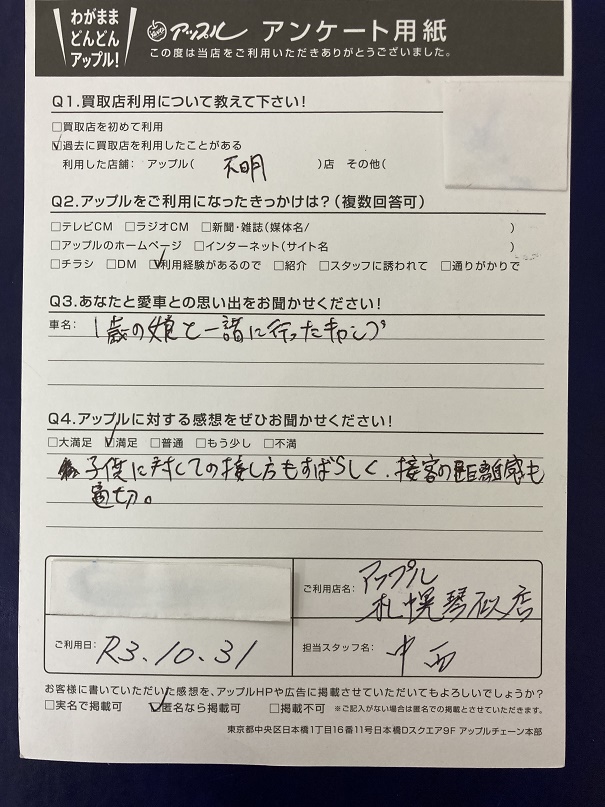 わがまま
どんどん
アップル!
アップル アンケート用紙
この度は当店をご利用いただきありがとうございました。
Q1.買取店利用について教えて下さい!
□買取店を初めて利用
☑過去に買取店を利用したことがある
利用した店舗: アップル( 不明 )店 その他(
Q2.アップルをご利用になったきっかけは?(複数回答可)
□テレビCM □ラジオCM □新聞・雑誌(媒体名/ )
□アップルのホームページ □インターネット(サイト名 )
□チラシ □DM ☑利用経験があるので □紹介 □スタッフに誘われて □通りがかりで
Q3.あなたと愛車との思い出をお聞かせください!
車名: 1歳の娘と一諸に行ったキャンプ
Q4.アップルに対する感想をぜひお聞かせください!
□大満足 ☑満足 □普通 □もう少し □不満
子供に対しての接し方もすばらしく、接客の距離感も
適切。
ご利用店名: アップル
札幌琴似店
ご利用日: R3.10.31
担当スタッフ名: 中西
お客様に書いていただいた感想を、アップルHPや広告に掲載させていただいてもよろしいでしょうか?
□実名で掲載可 ☑匿名なら掲載可 □掲載不可 ※ご記入がない場合は匿名での掲載とさせていただきます。
東京都中央区日本橋1丁目16番11号日本橋Dスクエア9F アップルチェーン本部